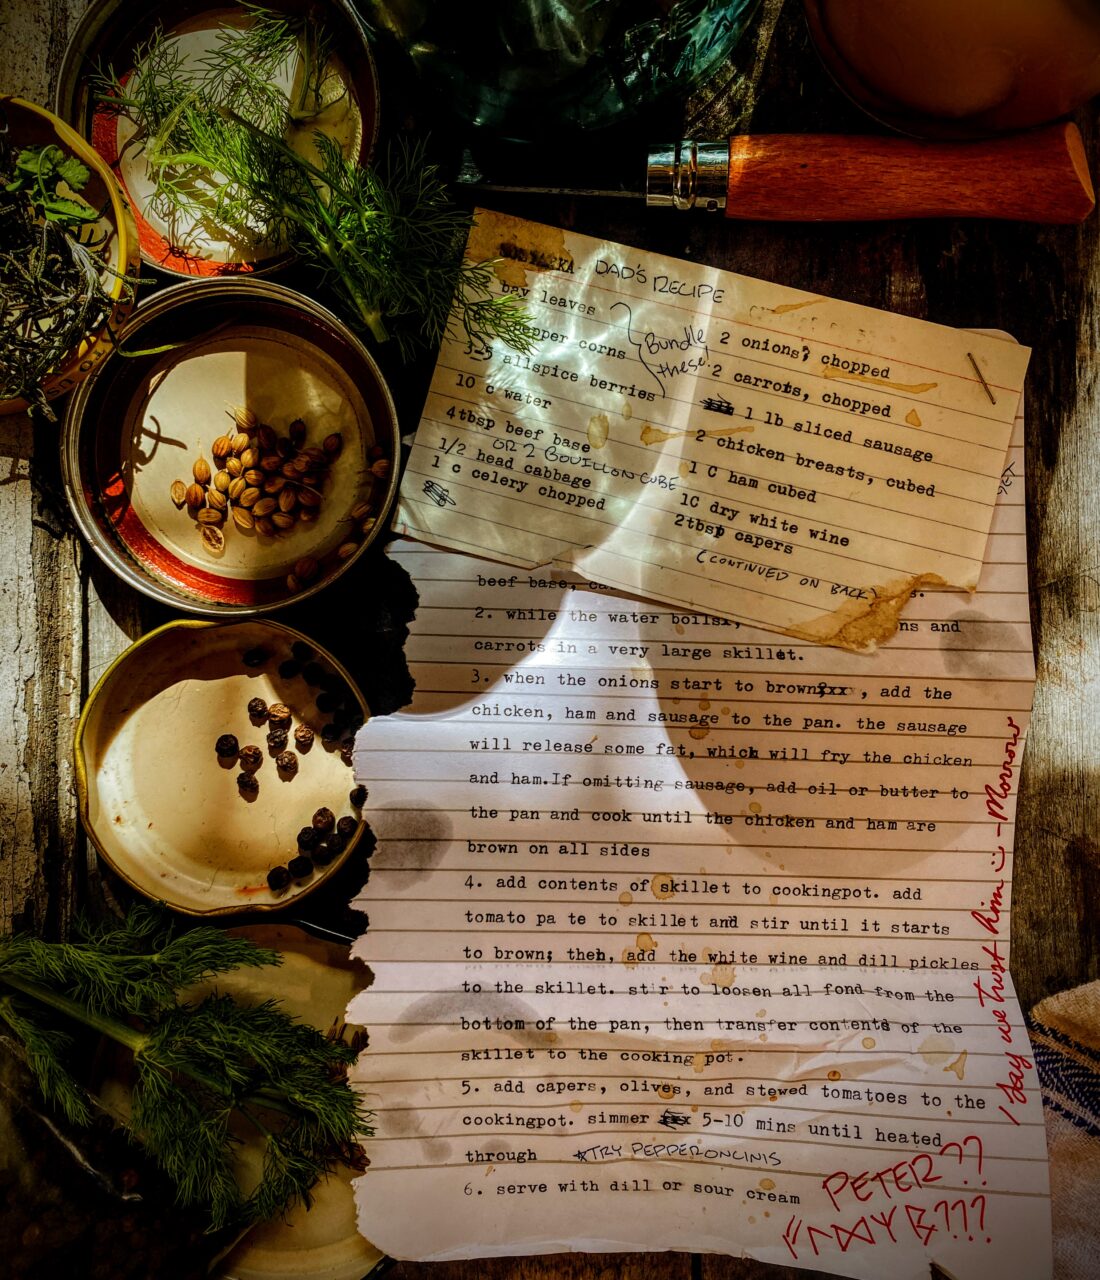 DAD'S RECIPE
bay leaves
pepper corns
3-5 allspice berries
Bundle
these.
10 c water
4tbsp beef base
OR 2 BOUILLON CUBE
1/2 head cabbage
1 c celery chopped
2 onions, chopped
2 carrots, chopped
1 lb sliced sausage
2 chicken breasts, cubed
1 C ham cubed
1C dry white wine
2tbsp capers
(CONTINUED ON BACK)
beef base,
2. while the water boils, ns and
carrots in a very large skillet.
3. when the onions start to brown, add the
chicken, ham and sausage to the pan. the sausage
will release some fat, which will fry the chicken
and ham.If omitting sausage, add oil or butter to
the pan and cook until the chicken and ham are
brown on all sides
4. add contents of skillet to cookingpot. add
tomato pa te to skillet and stir until it starts
to brown; then, add the white wine and dill pickles
to the skillet. stir to loosen all fond from the
bottom of the pan, then transfer contents of the
skillet to the cooking pot.
5. add capers, olives, and stewed tomatoes to the
cookingpot. simmer 5-10 mins until heated
through *TRY PEPPERONCINIS
6. serve with dill or sour cream
PETER??
I say we trust him :) -Morrow